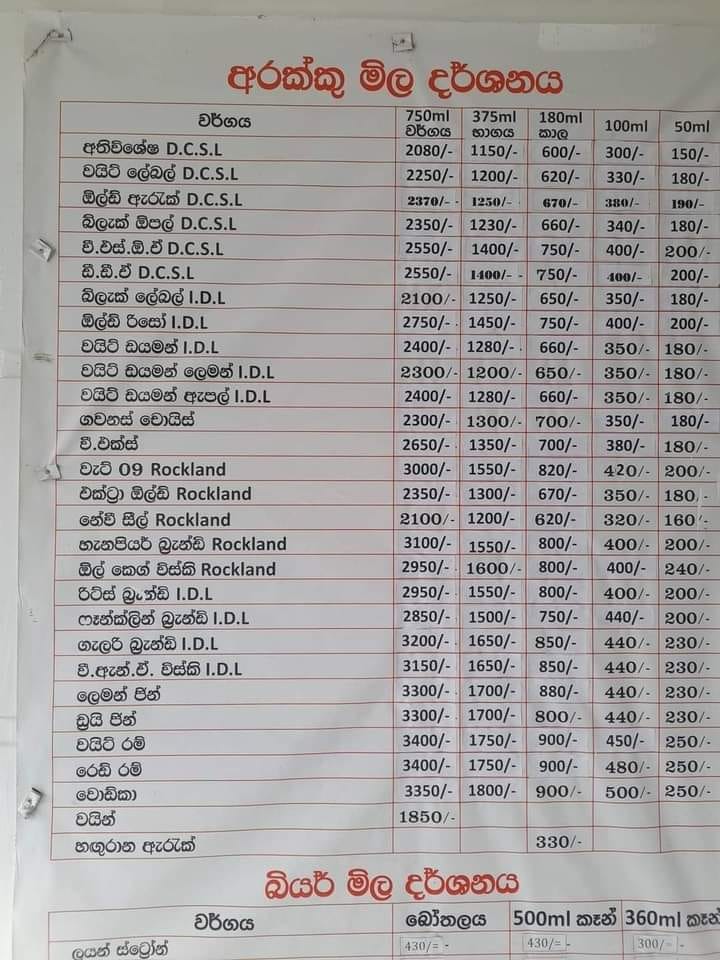 අරක්කු මිල දර්ශනය
වර්ගය 750ml වර්ගය 375ml භාගය 180ml කාල 100ml 50ml
අතිවිශේෂ D.C.S.L 2080/- 1150/- 600/- 300/- 150/-
වයිට් ලේබල් D.C.S.L 2250/- 1200/- 620/- 330/- 180/-
ඕල්ඩ් ඇරැක් D.C.S.L 2370/- 1250/- 670/- 380/- 190/-
බ්ලැක් ඕපල් D.C.S.L 2350/- 1230/- 660/- 340/- 180/-
වී.එස්.ඕ.ඒ D.C.S.L 2550/- 1400/- 750/- 400/- 200/-
ඩී.ඩී.ඒ D.C.S.L 2550/- 1400/- 750/- 400/- 200/-
බ්ලැක් ලේබල් I.D.L 2100/- 1250/- 650/- 350/- 180/-
ඕල්ඩ් රිසෝ I.D.L 2750/- 1450/- 750/- 400/- 200/-
වයිට් ඩයමන් I.D.L 2400/- 1280/- 660/- 350/- 180/-
වයිට් ඩයමන් ලෙමන් I.D.L 2300/- 1200/- 650/- 350/- 180/-
වයිට් ඩයමන් ඇපල් I.D.L 2400/- 1280/- 660/- 350/- 180/-
ගවනස් චොයිස් 2300/- 1300/- 700/- 350/- 180/-
වී.එක්ස් 2650/- 1350/- 700/- 380/- 180/-
වැට් 09 Rockland 3000/- 1550/- 820/- 420/- 200/-
එක්ට්‍රා ඕල්ඩ් Rockland 2350/- 1300/- 670/- 350/- 180/-
නේවි සීල් Rockland 2100/- 1200/- 620/- 320/- 160/-
හැනපියර් බ්‍රැන්ඩි Rockland 3100/- 1550/- 800/- 400/- 200/-
ඕල් කෙග් විස්කි Rockland 2950/- 1600/- 800/- 400/- 240/-
රිට්ස් බ්‍රැන්ඩි I.D.L 2950/- 1550/- 800/- 400/- 200/-
ෆෑන්ක්ලින් බ්‍රැන්ඩි I.D.L 2850/- 1500/- 750/- 440/- 200/-
ගැලරි බ්‍රැන්ඩි I.D.L 3200/- 1650/- 850/- 440/- 230/-
වී.ඇන්.ඒ. විස්කි I.D.L 3150/- 1650/- 850/- 440/- 230/-
ලෙමන් ජින් 3300/- 1700/- 880/- 440/- 230/-
ඩ්‍රයි ජින් 3300/- 1700/- 800/- 440/- 230/-
වයිට් රම් 3400/- 1750/- 900/- 450/- 250/-
රෙඩ් රම් 3400/- 1750/- 900/- 480/- 250/-
වොඩ්කා 3350/- 1800/- 900/- 500/- 250/-
වයින් 1850/-
හඟුරාන ඇරැක් 330/-
බියර් මිල දර්ශනය
වර්ගය බෝතලය 500ml කෑන් 360ml කෑන්
ලයන් ස්ට්‍රෝන් 430/= - 430/= - 300/= -